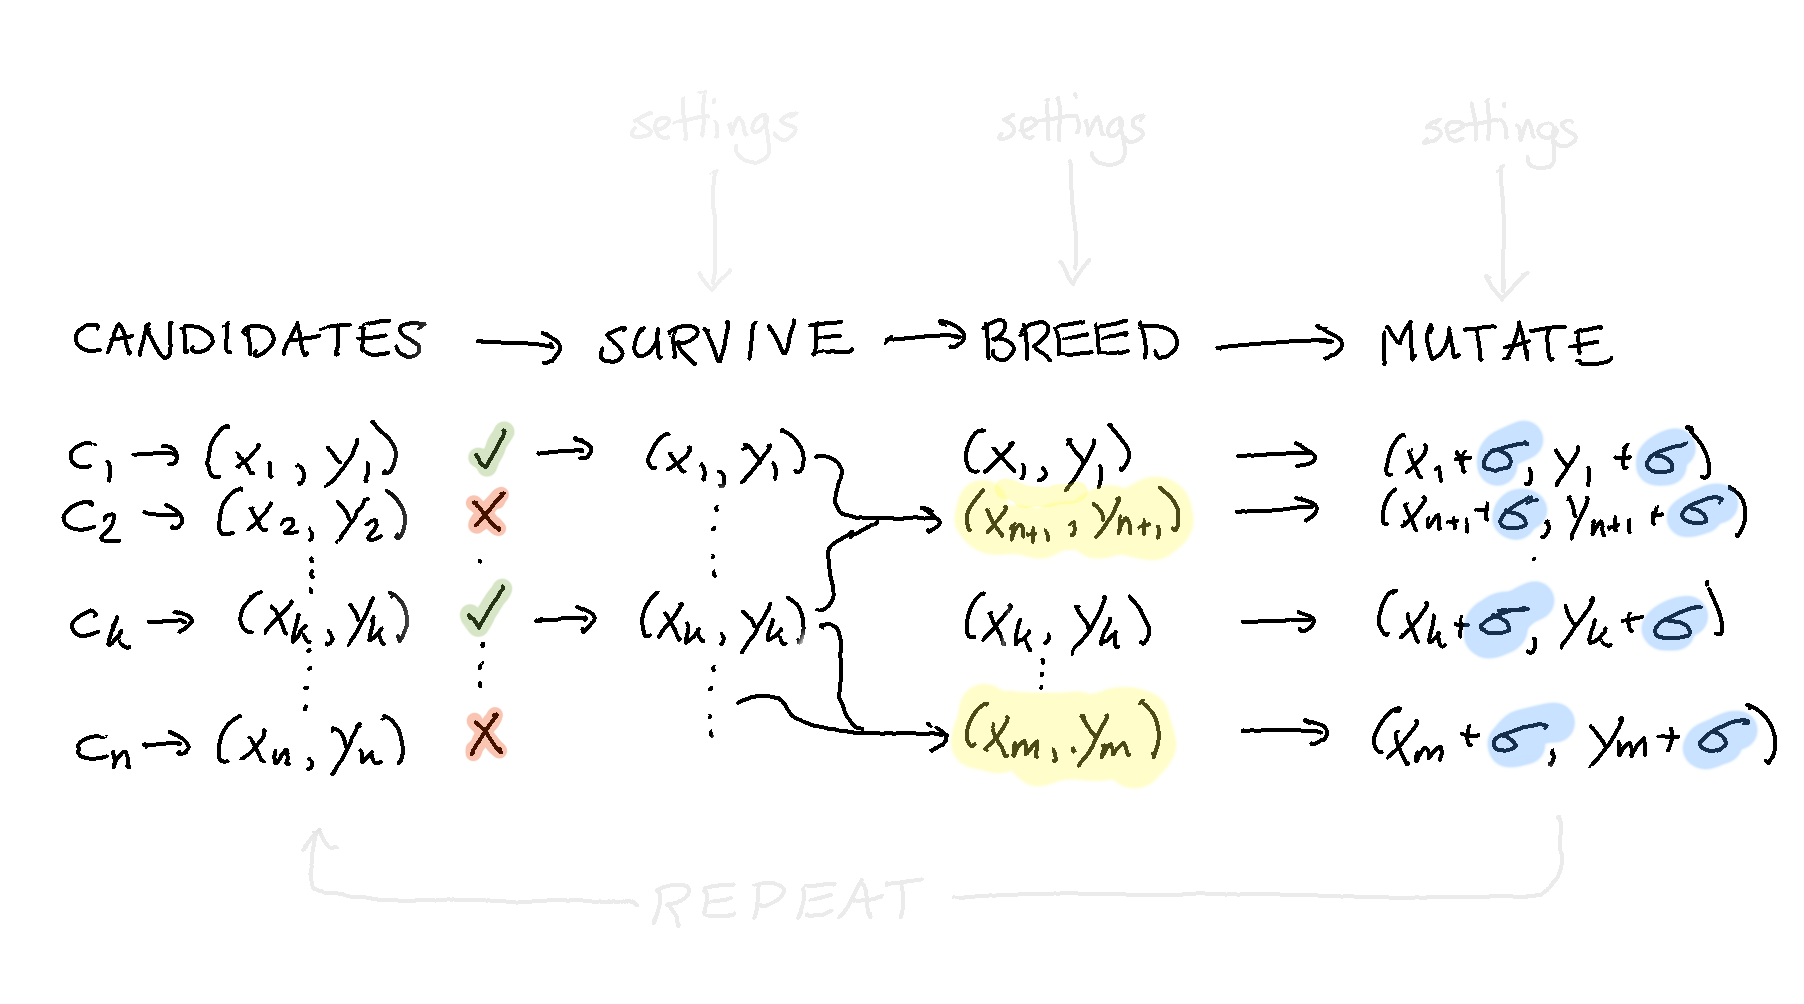 settings settings settings
CANDIDATES → SURVIVE → BREED → MUTATE
c₁ → (x₁, y₁) ✓ → (x₁, y₁) (x₁, y₁) → (x₁+σ, y₁+σ)
c₂ → (x₂, y₂) ✗ → (xₙ₊₁, yₙ₊₁) → (xₙ₊₁+σ, yₙ₊₁+σ)
cₖ → (xₖ, yₖ) ✓ → (xₖ, yₖ) (xₖ, yₖ) → (xₖ+σ, yₖ+σ)
cₙ → (xₙ, yₙ) ✗ → (xₘ, yₘ) → (xₘ+σ, yₘ+σ)
REPEAT